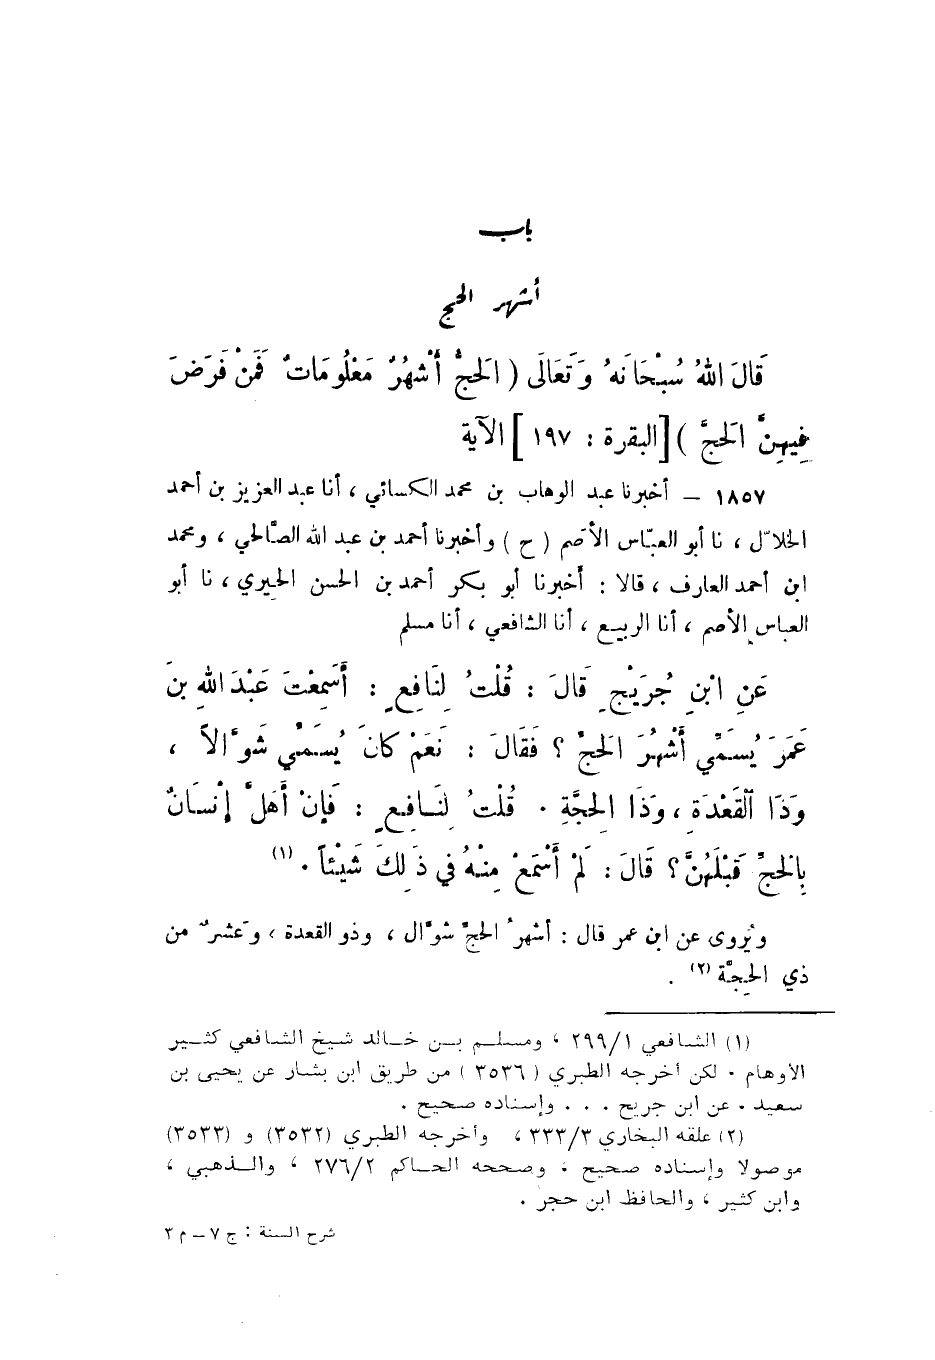 باب
أشهر الحج
قَالَ اللهُ سُبْحَانَهُ وَتَعَالَى ( الَحجُّ أَشْهُرٌ مَعْلُومَاتٌ فَمَنْ فَرَضَ
فِيهِنَّ الَحجَّ ) [البقرة : ١٩٧ ] الآية
١٨٥٧ – أخبرنا عبد الوهاب بن محمد الكسائي ، أنا عبد العزيز بن أحمد
الخلاّل ، نا أبو العبّاس الأصَم ( ح ) وأخبرنا أحمد بن عبد الله الصَّالحي ، ومحمد
ابن أحمد العارف ، قالا : أخبرنا أبو بكر أحمد بن الحسن الحِيري ، نا أبو
العباس الأصم ، أنا الربيع ، أنا الشافعي ، أنا مسلم
عَنِ ابْنِ جُرَيْجٍ قَالَ : قُلْتُ لِنَافِعٍ : أَسَمِعْتَ عَبْدَ اللهِ بنَ
عُمَرَ يُسَمِّي أَشْهُرَ الَحجِّ ؟ فَقَالَ : نَعَمْ كَانَ يُسَمِّي شَوَّالاً ،
وَذَا اَلْقَعْدَةِ ، وَذَا الِحجَّةِ . قُلْتُ لِنَافِعٍ : فَإِنْ أَهَلَّ إِنْسَانٌ
بِالَحجِّ قَبْلَهُنَّ ؟ قَالَ : لَمْ أَسْمَعْ مِنْهُ فِي ذَلِكَ شَيْئاً . (١)
ويُروى عن ابن عمر قال : أشهرُ الحجِّ شوَّال ، وذو القعدة ، وعَشرٌ من
ذي الحِجَّة (٢) .
(١) الشافعي ٢٩٩/١ ، ومسلم بن خالد شيخ الشافعي كثير
الأوهام . لكن أخرجه الطبري ( ٣٥٣٦ ) من طريق ابن بشار عن يحيى بن
سعيد . عن ابن جريج . . . وإسناده صحيح .
(٢) علقه البخاري ٣٣٣/٣ ، وأخرجه الطبري (٣٥٣٢) و (٣٥٣٣)
موصولا وإسناده صحيح ، وصححه الحاكم ٢٧٦/٢ ، والذهبي ،
وابن كثير ، والحافظ ابن حجر .
شرح السنة : ج ٧ – م ٣